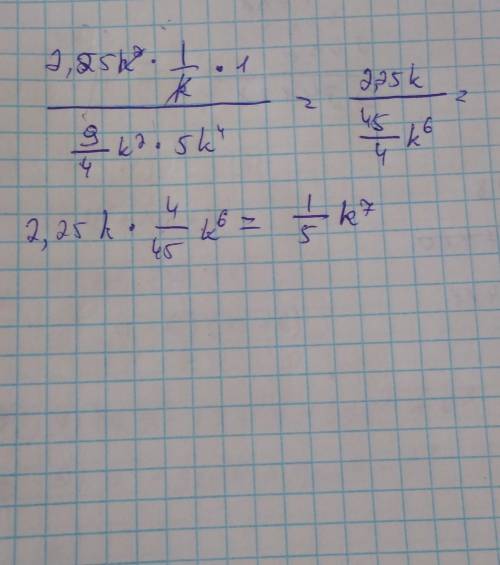 2,25k² · 1/k · 1 / (9/4 k² · 5k⁴) = 2,25k / (45/4 k⁶) =
2,25 k · 4/45 k⁶ = 1/5 k⁷